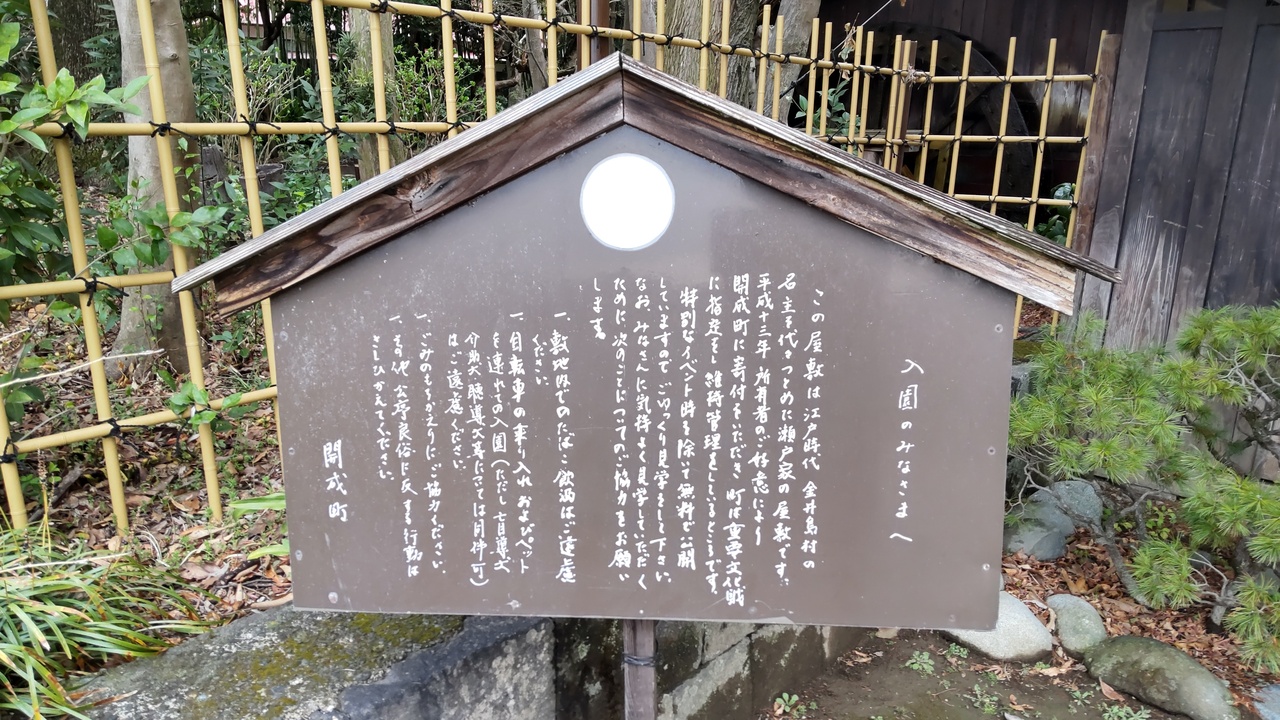 入園のみなさまへ
この屋敷は江戸時代 金井島村の
名主を代々つとめた瀬戸家の屋敷です。
平成十三年 所有者のご好意により
開成町に寄付をいただき 町は重要文化財
に指定をし 維持管理をしているところです。
特別なイベント時を除いて無料で公開
していますので ごゆっくり見学をして下さい。
なお、みなさんに気持よく見学していただく
ために 次のことについてのご協力をお願い
します。
一、敷地内でのたばこ 飲酒はご遠慮
ください。
一、自転車の乗り入れ およびペット
を連れての入園(ただし 盲導犬
介助犬 聴導犬等にさては同伴可)
はご遠慮ください。
一、ごみのもちかえりにご協力ください。
一、その他 公序良俗に反する行動は
さしひかえてください。
開成町